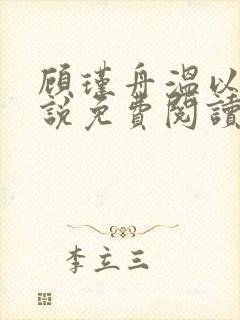 顾瑾舟溫以
說免費閱讀
李立三